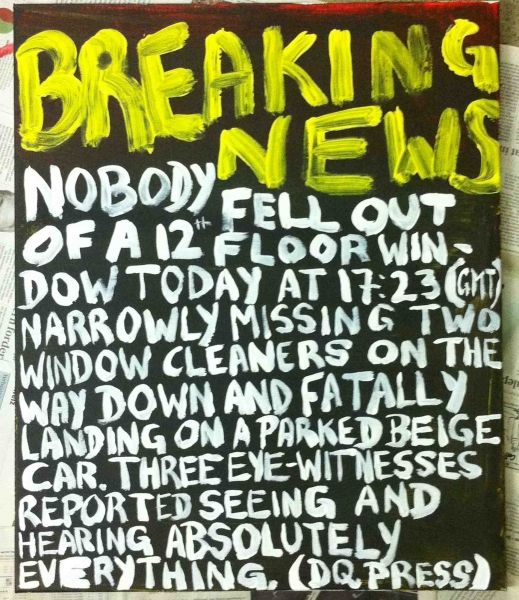 BREAKING
NEWS
NOBODY FELL OUT
OF A 12th FLOOR WIN-
DOW TODAY AT 17:23 (GMT)
NARROWLY MISSING TWO
WINDOW CLEANERS ON THE
WAY DOWN AND FATALLY
LANDING ON A PARKED BEIGE
CAR. THREE EYE-WITNESSES
REPORTED SEEING AND
HEARING ABSOLUTELY
EVERYTHING. (DQ PRESS)